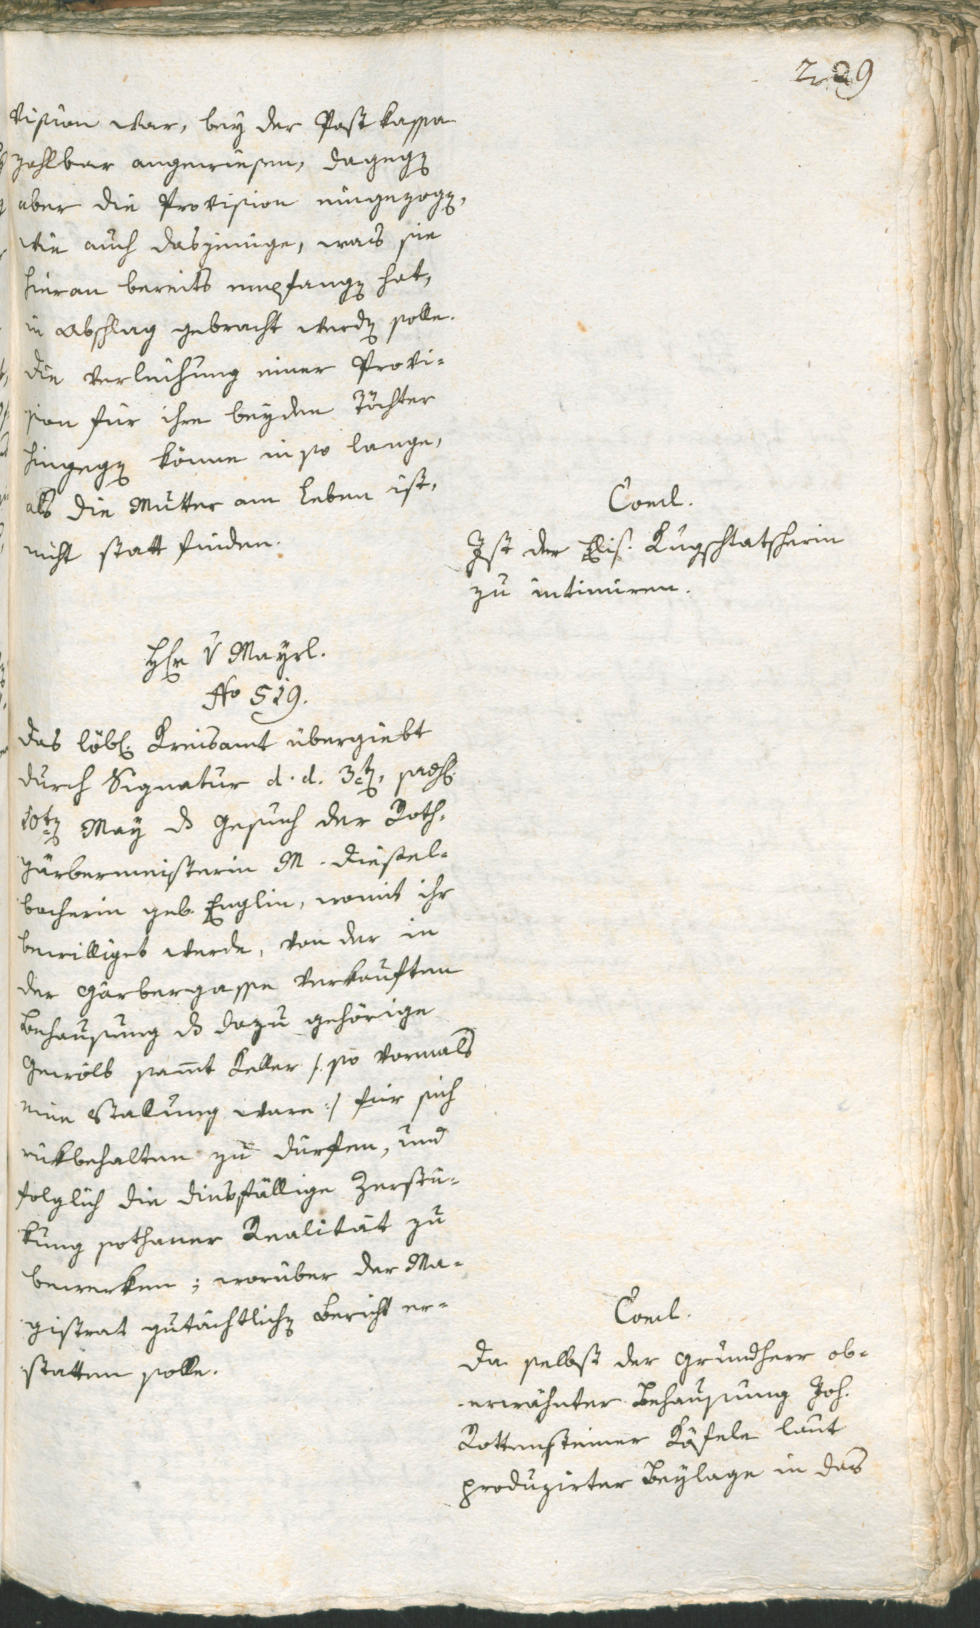 229
vision war, bey der Post kassa
zahlbar angewiesen, dageg[en]
aber die Provision eingezog[en],
wie auch dasjenige, was sie
hieran bereits empfang[en] hat,
in Abschlag gebracht werd[en] solle.
Die Verleihung einer Provi-
sion für ihre beyden Töchter
hingeg[en] könne in so lange,
als die Mutter am Leben ist,
nicht statt finden.
Concl.
Ist der Elis.
zu intimiren.
H[err] v Mayrl.
No 519.
Das löbl. Kreisamt übergiebt
durch Signatur d. d. 3t[en],
10t[en] May d[as] Gesuch der Roth-
gärbermeisterin M. Diestel-
bacherin geb. Englin, womit ihr
bewilliget werde, von der in
der Gärbergasse verkauften
Behausung d[as] dazu gehörige
Gewölb sam̄t Keller /: so vormals
eine Stallung ware :/ für sich
rükbehalten zu dürfen, und
folglich die diesfällige Zerstü-
kung sothaner Realität zu
bewerken; worüber der Ma-
gistrat gutächtlich[en] Bericht er-
statten solle.
Concl.
Da selbst der Grundherr ob-
erwähnter Behausung Joh.
Rottensteiner Käsele laut
produzirter Beylage in das